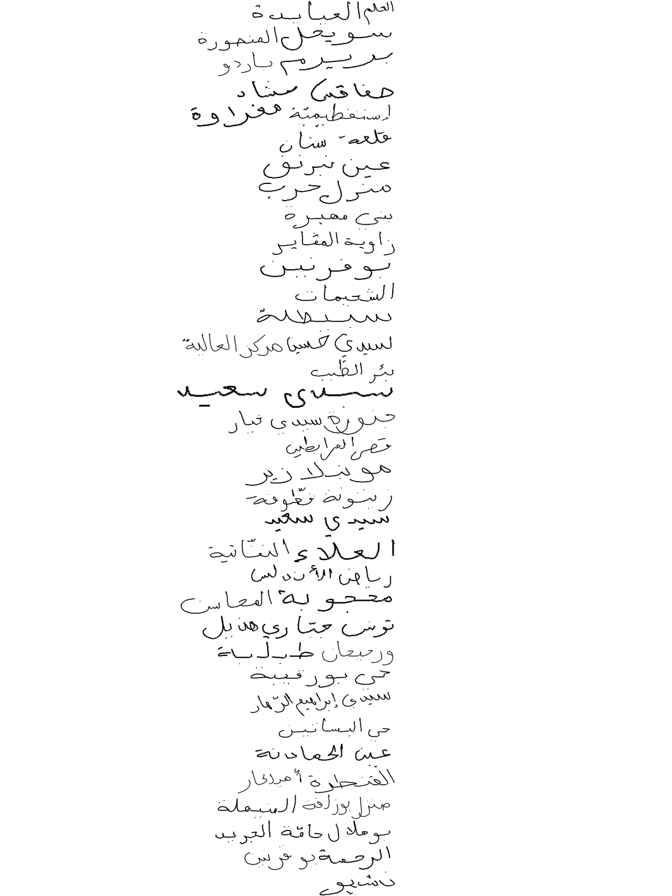 العلم العبايدة
سويحل المنصورة
بريرم باردو
صفاقس مشاد
اسنفطيمية مغراوة
قلعة سنان
عين نبرنق
منزل حرب
بني مهيرة
زاوية المقايز
بوفرنين
الشحيمات
سبيطلة
لسيدي حسين مركز العالية
بئر الطيب
سيدي سعيد
حنورة سيدي خيار
قصر المرابطين
موبلازير
زيتونة قطوفة
سيدي سعيد
العلاء النتانية
رياض الأندلس
معجوبة المعاسن
تونس جتاري هذيل
ورجيعان طبلبة
حي بورقيبة
سيدي إبراهيم الزهار
حي البساتين
عين الحمادنة
القنطرة
منزل بوزلفة المنيهلة
بوهلال حامة الجريد
الرحمة بوفريس
ناشيو